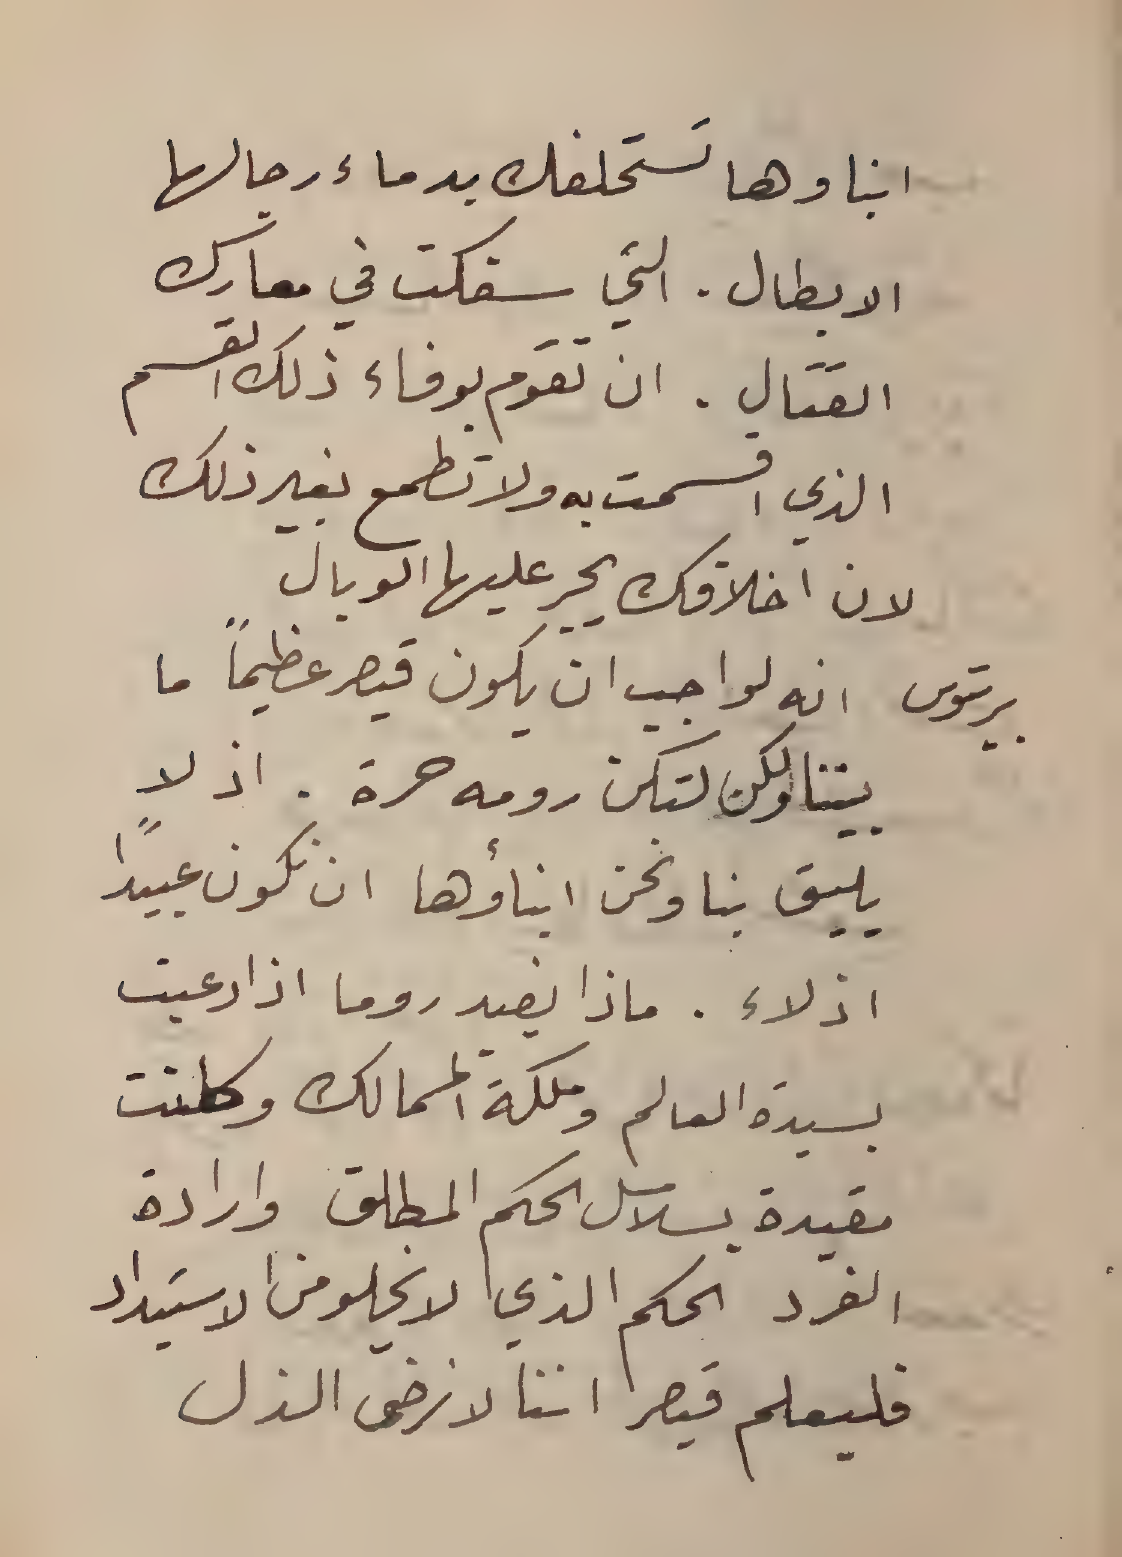 ابناوها تستحلفك بدماء رجالها
الابطال . التي سفكت في معارك
القتال . ان تقوم بوفاء ذلك القسم
الذي اقسمت به ولا تطمع بغير ذلك
لان اخلاقك يجر عليها الوبال
برتوس انه لواجب ان يكون قيصر عظيماً ما
بيننا ولكن لتكن رومه حرة . اذ لا
يليق بنا ونحن ابناؤها ان نكون عبيداً
اذلاء . ماذا يفيد روما اذا دعيت
بسيدة العالم وملكة الممالك وكانت
مقيدة بسلاسل الحكم المطلق وارادة
الفرد الحكم الذي لا يخلو من الاستبداد
فليعلم قيصر اننا لا نرضى الذل